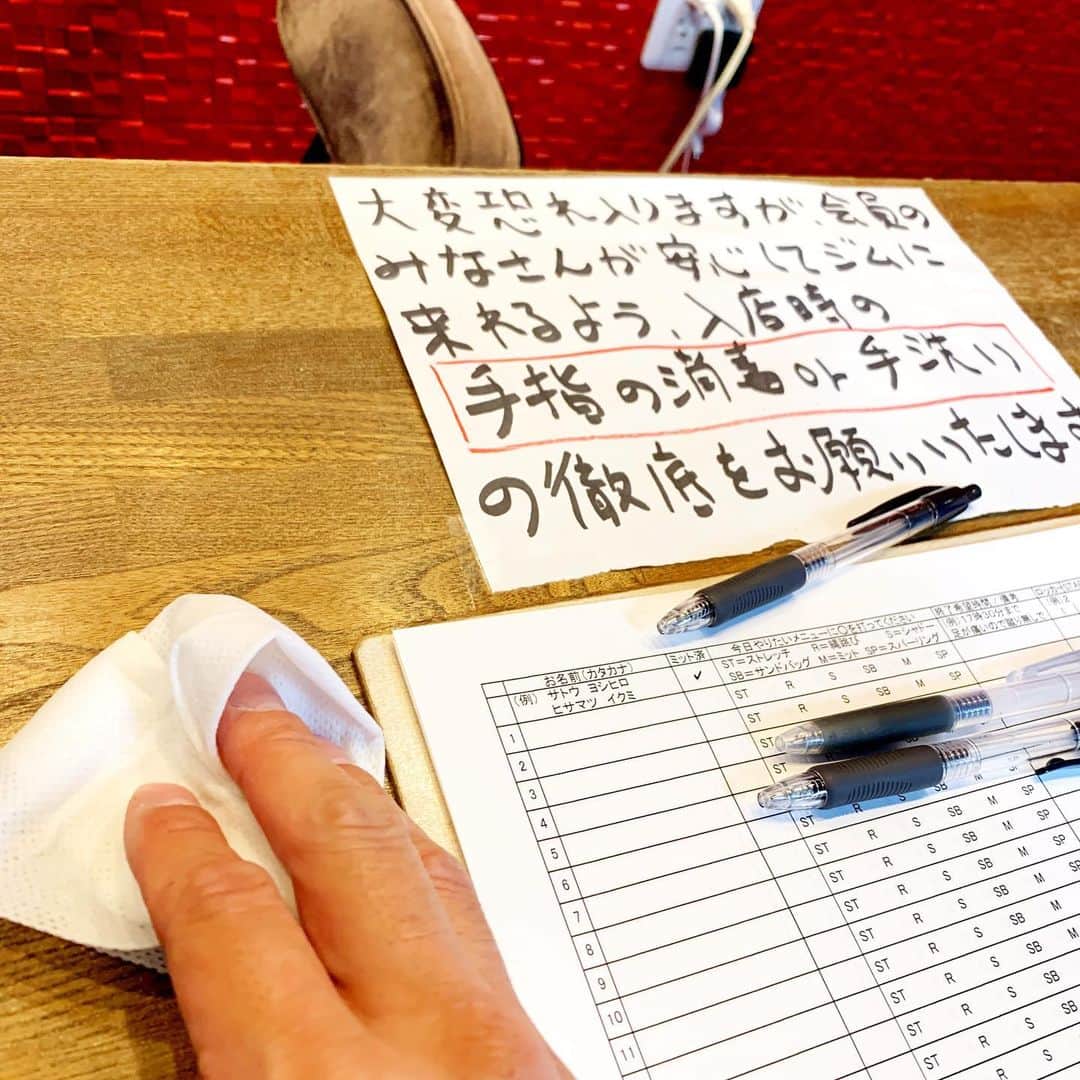 大変恐れ入りますが、会員の
みなさんが安心してジムに
来れるよう、入店時の
手指の消毒or手洗い
の徹底をお願いいたします
お名前(カタカナ) ミット済 今日やりたいメニューに○を打ってください 終了希望時間/備考
ST=ストレッチ R=縄跳び S=シャドー 例:17時30分まで
SB=サンドバッグ M=ミット SP=スパーリング 足が痛いので蹴り無しで
(例) サトウ ヨシヒロ ✓ ST R S SB M SP
ヒサマツ イクミ
1 ST R S SB M SP
2 ST
3 ST
4 ST R S SB M SP
5 ST R S SB M SP
6 ST R S SB M SP
7 ST R S SB M SP
8 ST R S SB M SP
9 ST R S SB M
10 ST R S SB M
11 ST R S SB M